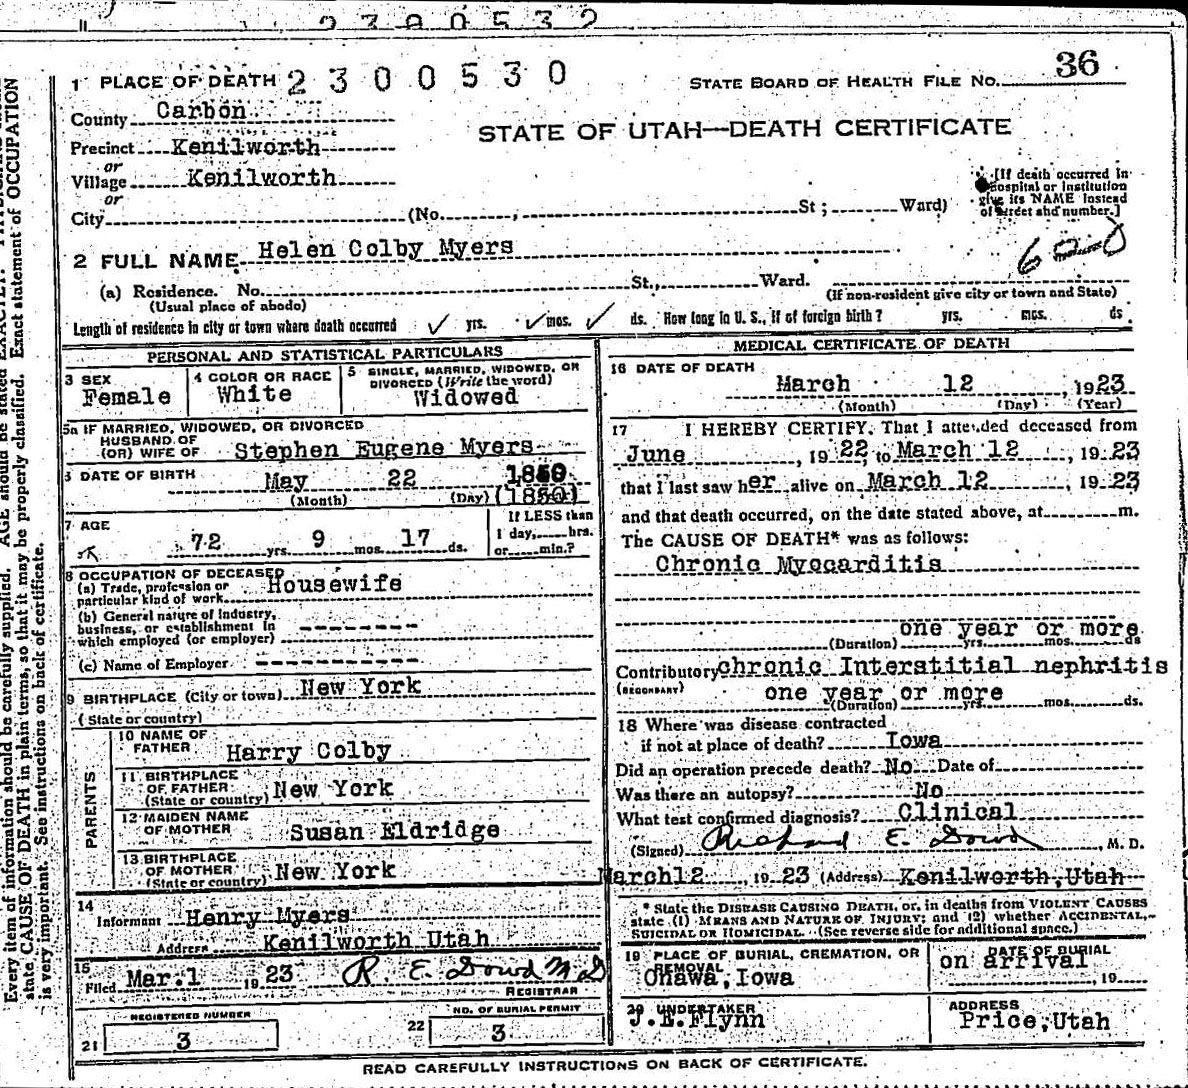 2300532
1 PLACE OF DEATH 2300530
STATE BOARD OF HEALTH FILE NO. 36
County Carbon
STATE OF UTAH—DEATH CERTIFICATE
Precinct Kenilworth
or
Village Kenilworth
or
City (No. , St ; Ward)
[If death occurred in hospital or institution give its NAME instead of street and number.]
2 FULL NAME Helen Colby Myers
(a) Residence. No. St., Ward.
(Usual place of abode)
(If non-resident give city or town and State)
Length of residence in city or town where death occurred ✓ yrs. ✓ mos. ✓ ds. How long in U. S., if of foreign birth? yrs. mos. ds.
PERSONAL AND STATISTICAL PARTICULARS
3 SEX
Female
4 COLOR OR RACE
White
5 SINGLE, MARRIED, WIDOWED, OR
DIVORCED (Write the word)
Widowed
5a IF MARRIED, WIDOWED, OR DIVORCED
HUSBAND OF
(OR) WIFE OF Stephen Eugene Myers
6 DATE OF BIRTH
May 22
(Month) (Day) (1850)
7 AGE
72 yrs. 9 mos. 17 ds.
If LESS than
1 day, hrs.
or min.?
8 OCCUPATION OF DECEASED
(a) Trade, profession or
particular kind of work Housewife
(b) General nature of industry,
business, or establishment in
which employed (or employer)
(c) Name of Employer
9 BIRTHPLACE (City or town) New York
(State or country)
PARENTS
10 NAME OF
FATHER Harry Colby
11 BIRTHPLACE
OF FATHER
(State or country) New York
12 MAIDEN NAME
OF MOTHER Susan Eldridge
13 BIRTHPLACE
OF MOTHER
(State or country) New York
14
Informant Henry Myers
Address Kenilworth Utah
15
Filed Mar. 1 1923 R. E. Dowd M D
REGISTRAR
REGISTERED NUMBER
21 3
NO. OF BURIAL PERMIT
22 3
MEDICAL CERTIFICATE OF DEATH
16 DATE OF DEATH
March 12, 1923
(Month) (Day) (Year)
17 I HEREBY CERTIFY, That I attended deceased from
June, 1922, to March 12, 1923
that I last saw her alive on March 12, 1923
and that death occurred, on the date stated above, at m.
The CAUSE OF DEATH* was as follows:
Chronic Myocarditis
one year or more
(Duration) yrs. mos. ds
Contributory chronic Interstitial nephritis
(SECONDARY) one year or more
(Duration) yrs. mos. ds.
18 Where was disease contracted
if not at place of death? Iowa
Did an operation precede death? No Date of
Was there an autopsy? No
What test confirmed diagnosis? Clinical
(Signed) Richard E. Dowd, M. D.
March 12, 1923 (Address) Kenilworth, Utah
* State the DISEASE CAUSING DEATH, or, in deaths from VIOLENT CAUSES
state (1) MEANS AND NATURE OF INJURY; and (2) whether ACCIDENTAL,
SUICIDAL OR HOMICIDAL. (See reverse side for additional space.)
19 PLACE OF BURIAL, CREMATION, OR
REMOVAL
Onawa, Iowa
DATE OF BURIAL
on arrival
19
20 UNDERTAKER
J.E.Flynn
ADDRESS
Price, Utah
READ CAREFULLY INSTRUCTIONS ON BACK OF CERTIFICATE.
Every item of information should be carefully supplied. AGE should be stated EXACTLY.
state CAUSE OF DEATH in plain terms, so that it may be properly classified. Exact statement of OCCUPATION
is very important. See instructions on back of certificate.